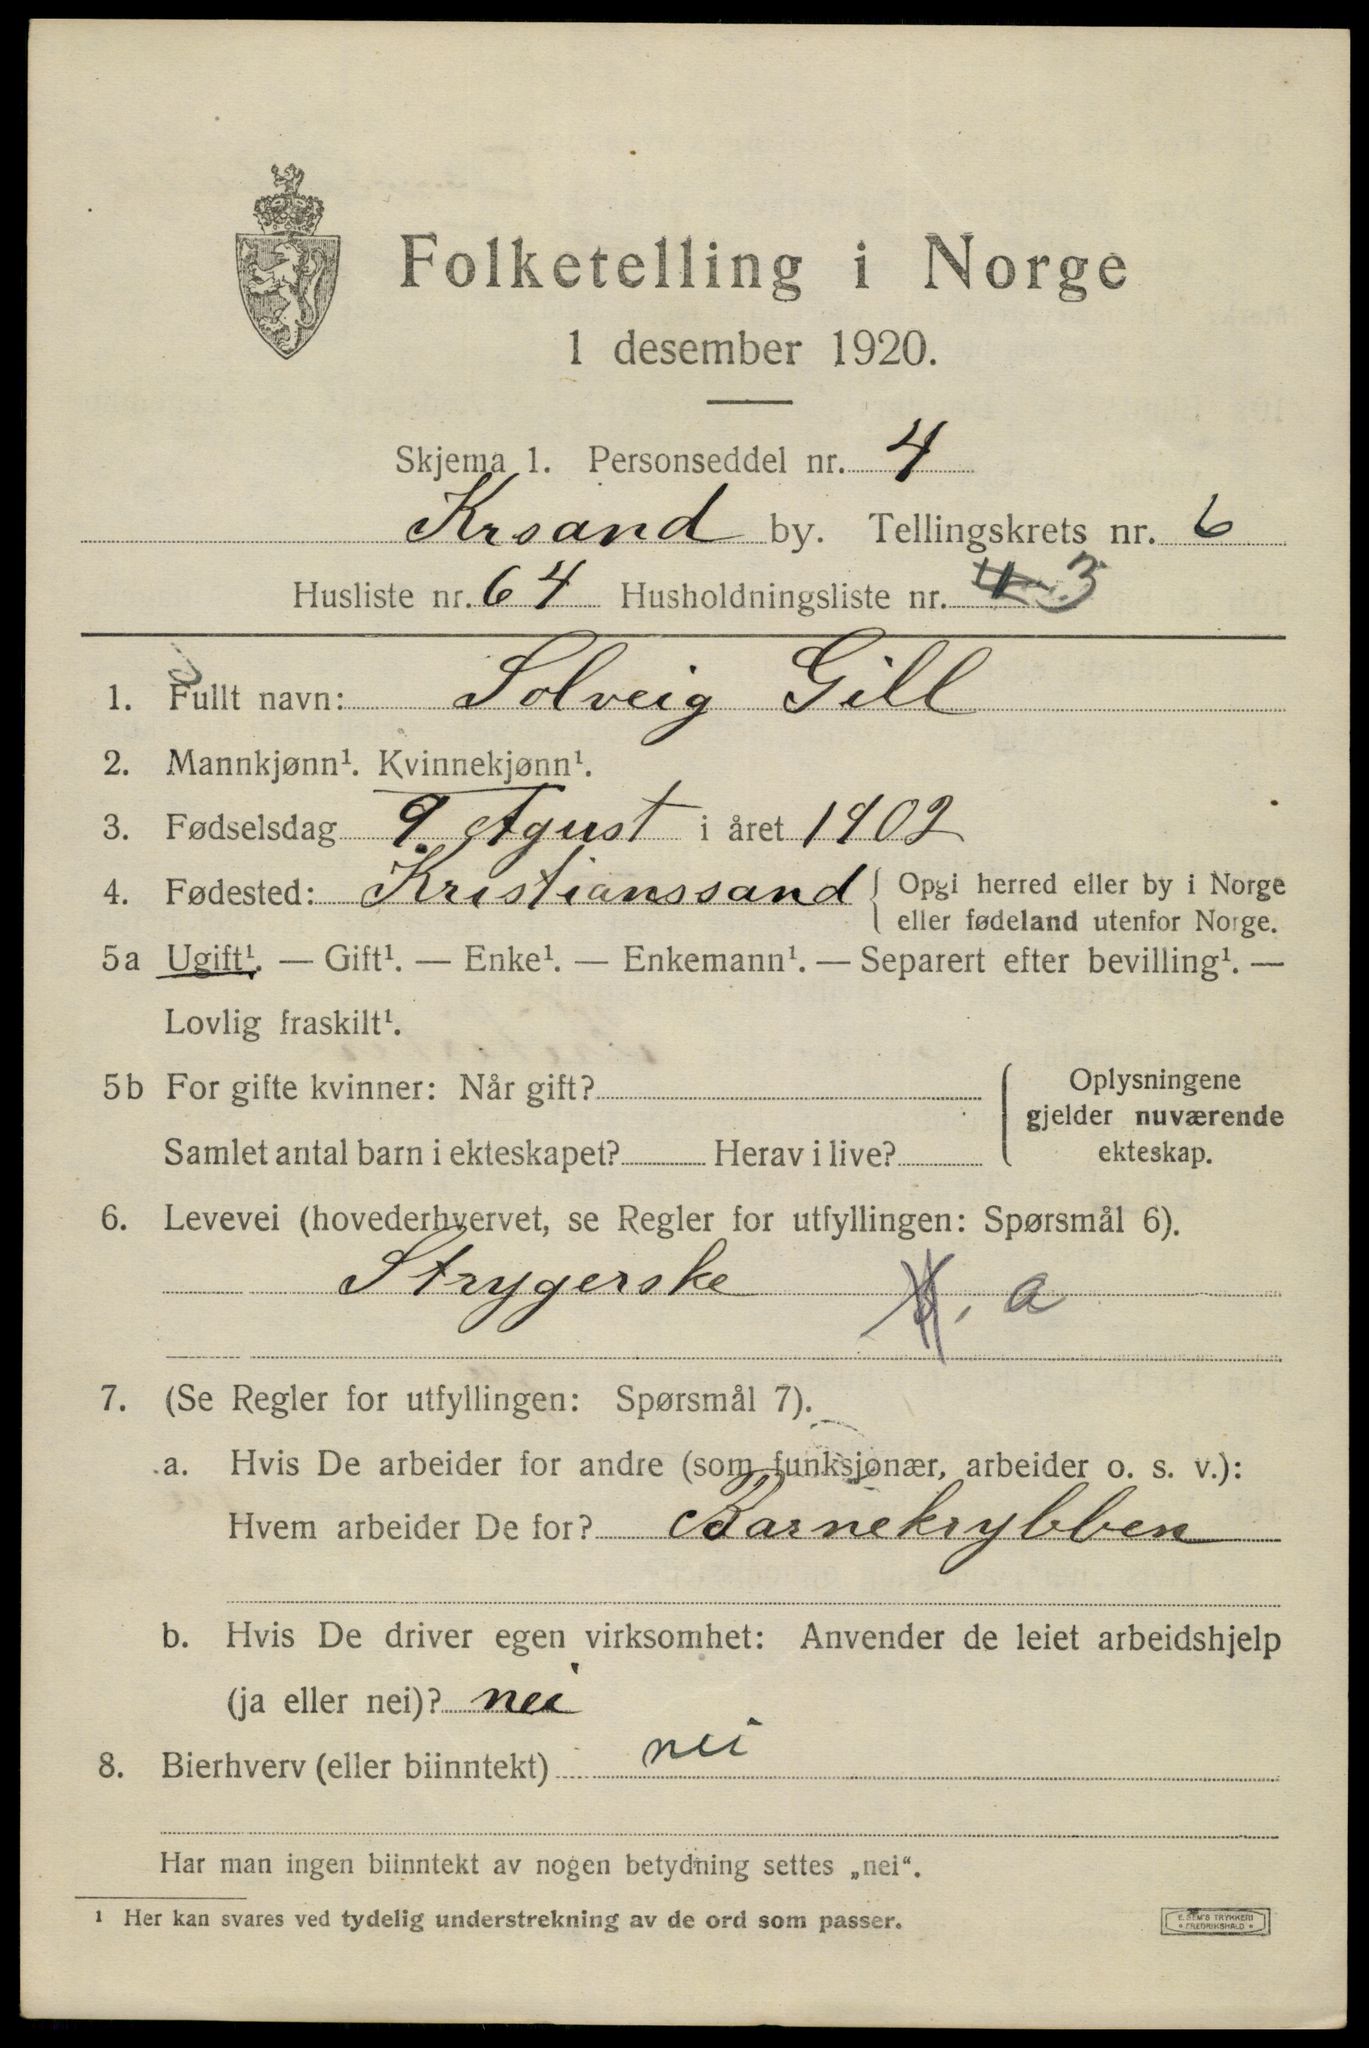 Folketelling i Norge
1 desember 1920.
Skjema 1. Personseddel nr. 4
Krsand by. Tellingskrets nr. 6
Husliste nr. 64 Husholdningsliste nr. 3
1. Fullt navn: Solveig Gill
2. Mannkjønn¹. Kvinnekjønn¹.
3. Fødselsdag 9 Agust i året 1902
4. Fødested: Kristianssand { Opgi herred eller by i Norge
eller fødeland utenfor Norge.
5a Ugift¹. — Gift¹. — Enke¹. — Enkemann¹. — Separert efter bevilling¹. —
Lovlig fraskilt¹.
5b For gifte kvinner: Når gift?
Samlet antal barn i ekteskapet? Herav i live?
Oplysningene
gjelder nuværende
ekteskap.
6. Levevei (hovederhvervet, se Regler for utfyllingen: Spørsmål 6).
Strygerske a
7. (Se Regler for utfyllingen: Spørsmål 7).
a. Hvis De arbeider for andre (som funksjonær, arbeider o. s. v.):
Hvem arbeider De for? Barnekrybben
b. Hvis De driver egen virksomhet: Anvender de leiet arbeidshjelp
(ja eller nei)? nei
8. Bierhverv (eller biinntekt) nei
Har man ingen biinntekt av nogen betydning settes „nei“.
¹ Her kan svares ved tydelig understrekning av de ord som passer.
E. SEM'S TRYKKERI
• FREDRIKSHALD •